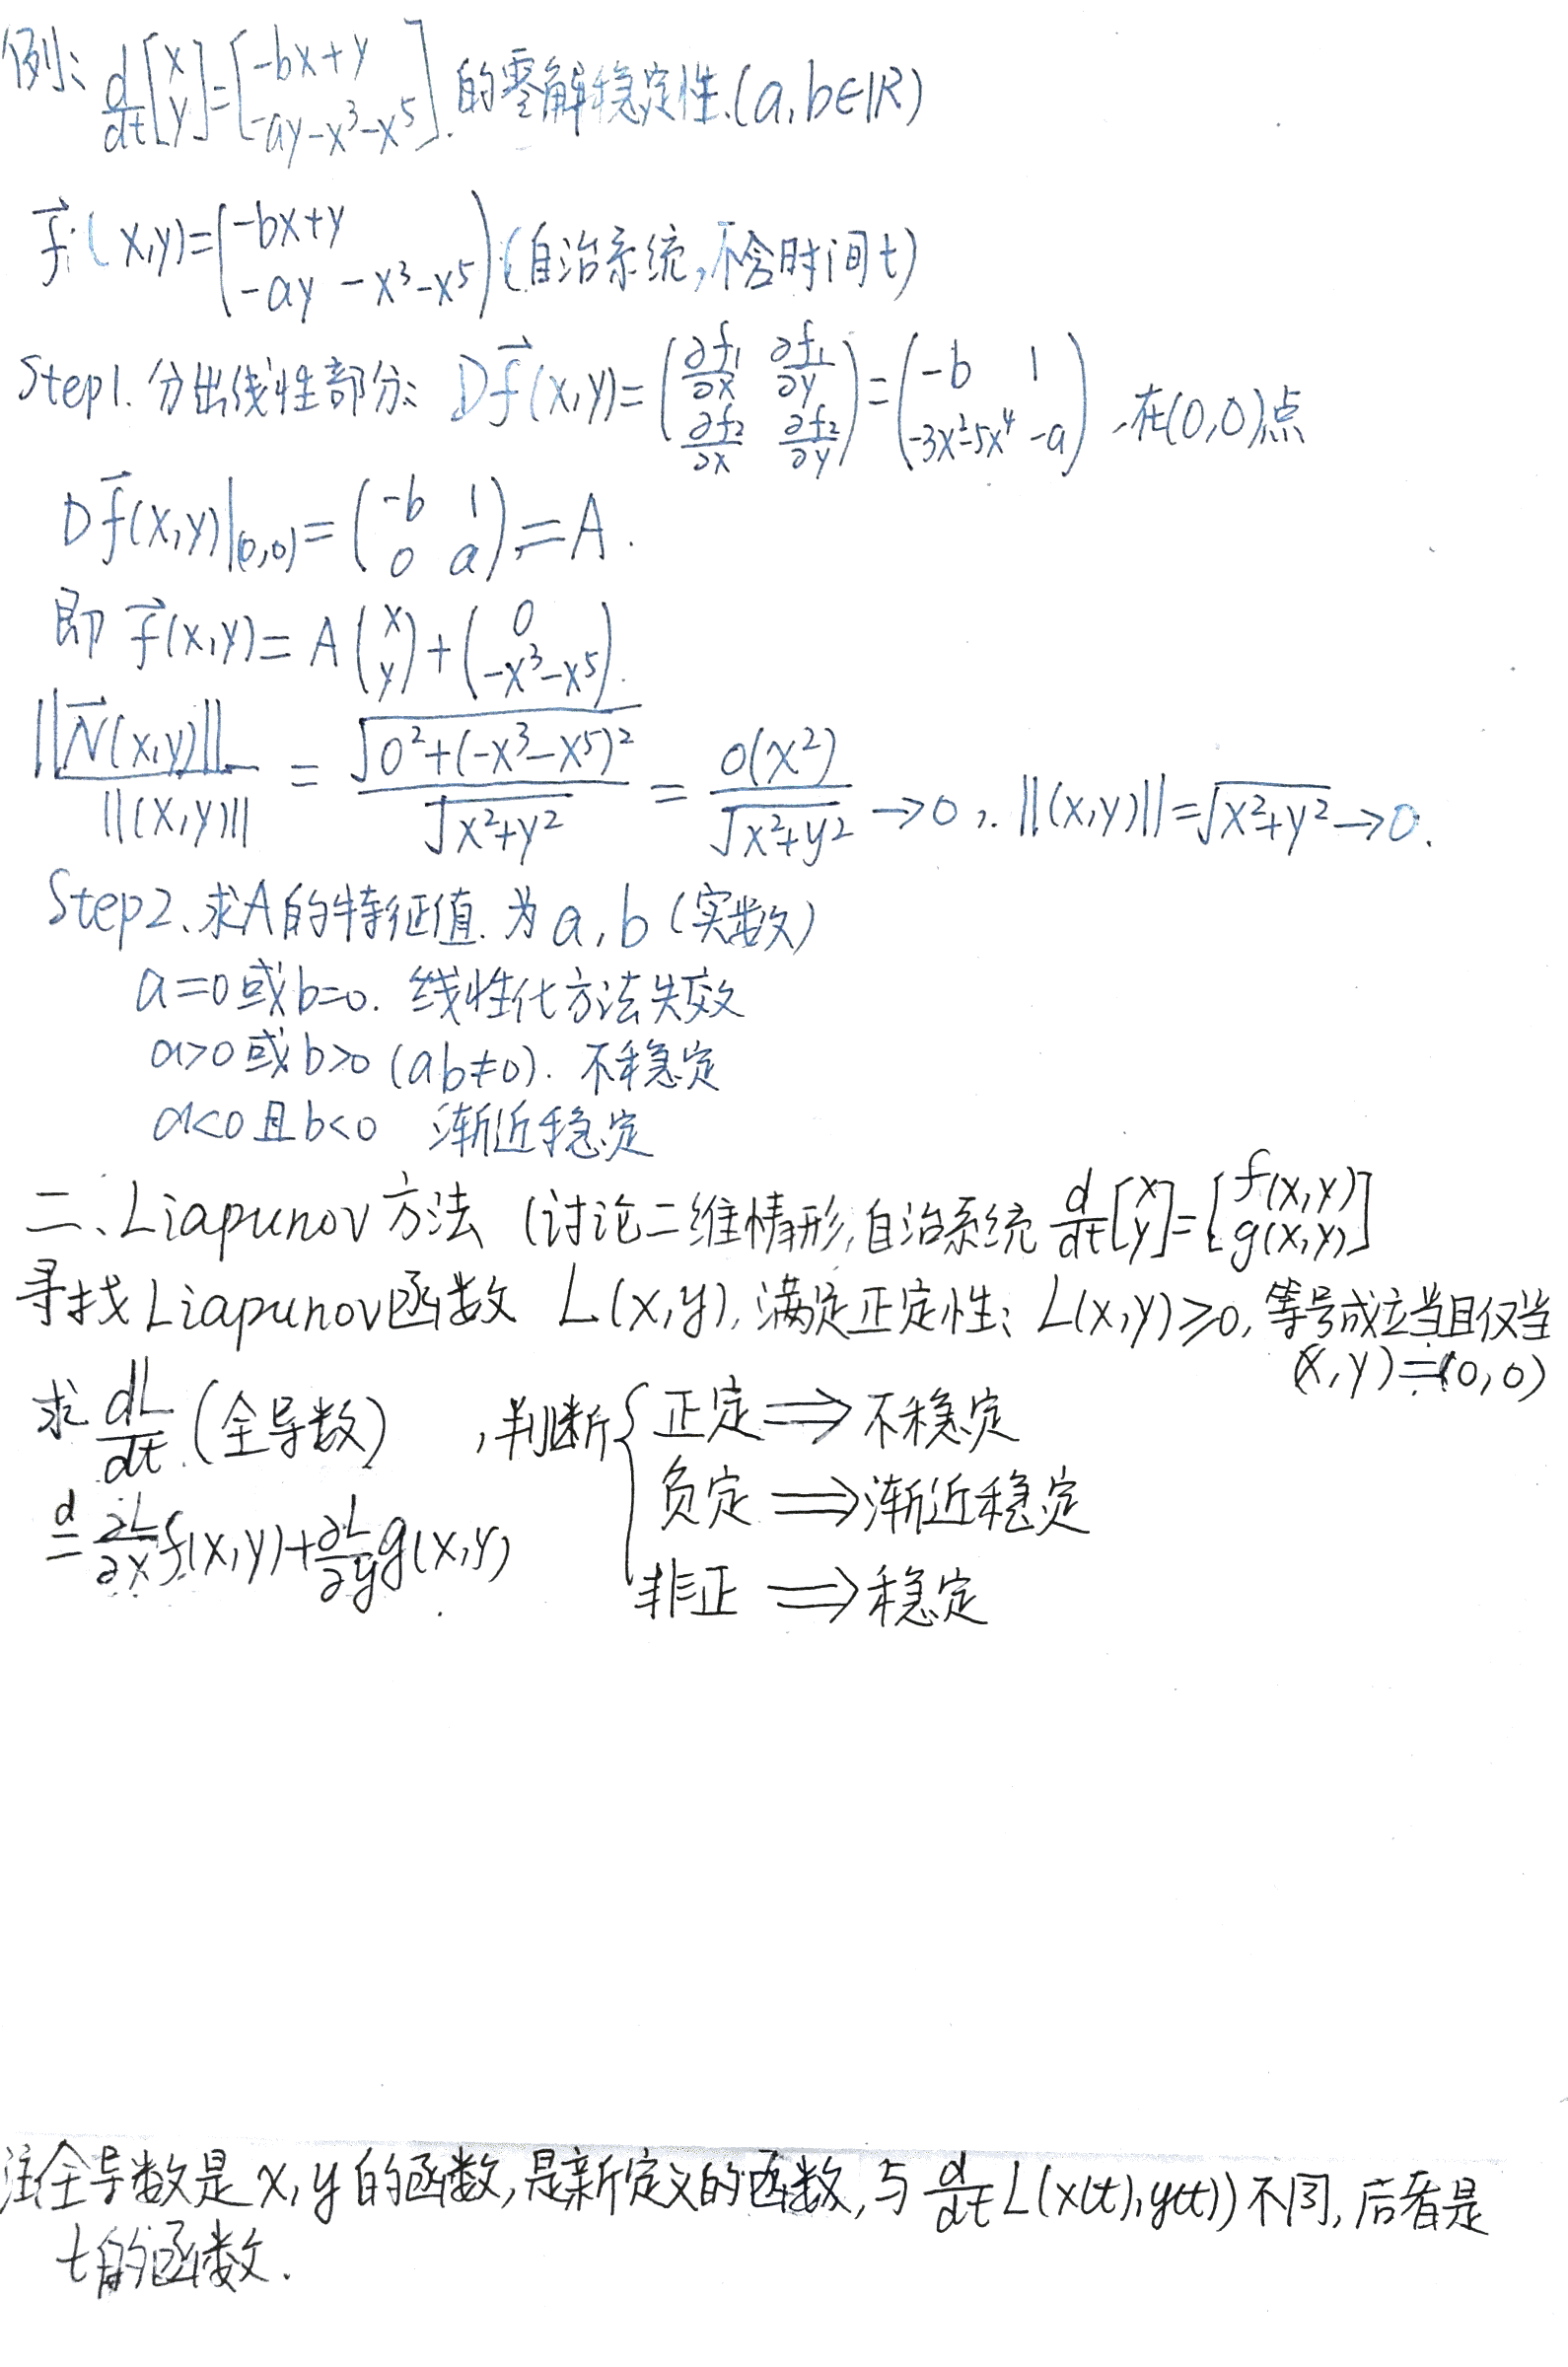 例: d/dt [x y] = [-bx+y -ay-x³-x⁵]. 的零解稳定性.(a,b∈ℝ)
f⃗(x,y)=(-bx+y -ay-x³-x⁵)(自治系统,不含时间t)
Step1. 分出线性部分: Df⃗(x,y)=(∂f₁/∂x ∂f₁/∂y ∂f₂/∂x ∂f₂/∂y)=(-b 1 -3x²-5x⁴ -a),在(0,0)点
Df⃗(x,y)|(0,0)=(-b 1 0 a):=A.
即 f⃗(x,y)=A(x y)+(0 -x³-x⁵).
||N⃗(x,y)||/||(x,y)|| = √(0²+(-x³-x⁵)²)/√(x²+y²) = o(x²)/√(x²+y²) →0, ||(x,y)||=√(x²+y²)→0.
Step2、求A的特征值. 为a,b(实数)
a=0或b=0. 线性化方法失效
a>0或b>0 (ab≠0). 不稳定
a<0且b<0 渐近稳定
二、Liapunov方法 (讨论二维情形,自治系统 d/dt [x y]=[f(x,y) g(x,y)]
寻找Liapunov函数 L(x,y),满足正定性: L(x,y)≥0,等号成立当且仅当
(x,y)=(0,0)
求 dL/dt (全导数) ,判断{正定⟹不稳定
负定⟹渐近稳定
≝ ∂L/∂x f(x,y)+∂L/∂y g(x,y)
非正⟹稳定
注全导数是x,y的函数,是新定义的函数,与 d/dt L(x(t),y(t))不同,后者是
t的函数.